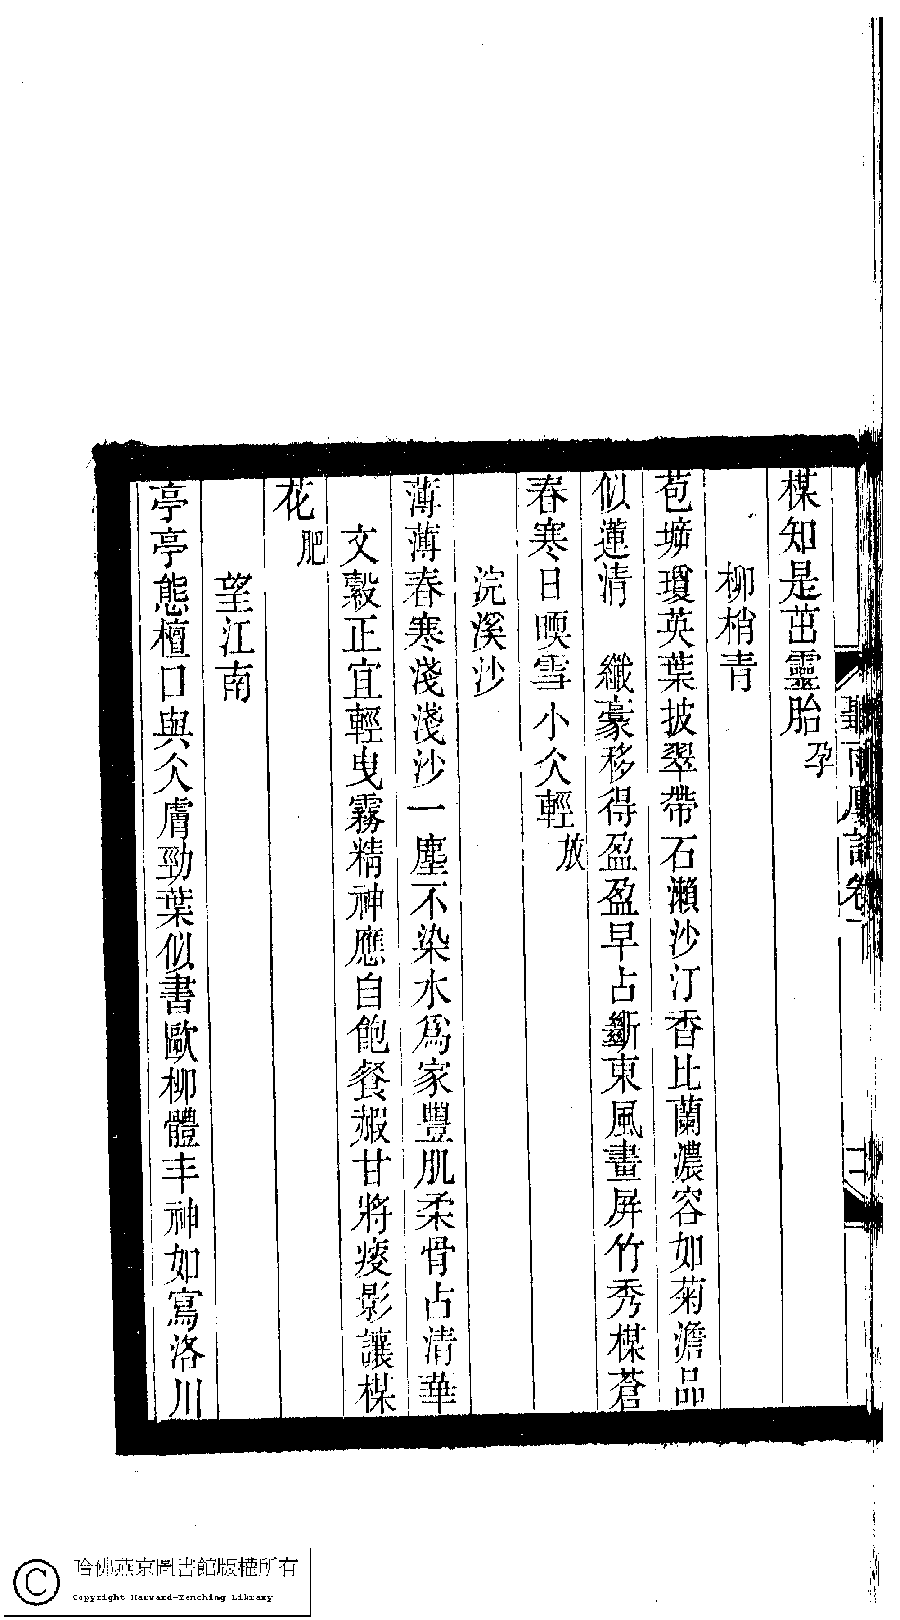 楳知是茁靈胎孕
柳梢青
苞擘瓊英葉披翠帶石瀨沙汀香比蘭濃容如菊澹品
似蓮清　纖豪移得盈盈早占斷東風畫屏竹秀楳蒼
春寒日暖雪小仌輕放
浣溪沙
薄薄春寒淺淺沙一塵不染水爲家豐肌柔骨占清華
文縠正宜輕曳霧精神應自飽餐霞甘將痩影讓楳
花肥
望江南
亭亭態檀口與仌膚勁葉似書歐柳體丰神如寫洛川
聽雨
哈佛燕京圖書館版權所有
Copyright Harvard-Yenching Library